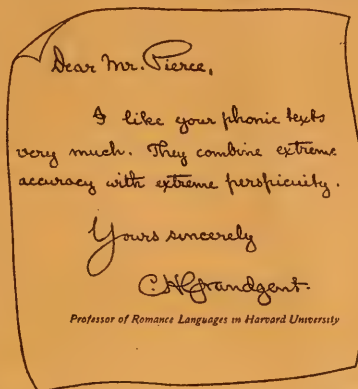 Dear Mr. Pierce,
I like your phonic texts
very much. They combine extreme
accuracy with extreme perspicuity.
Yours sincerely
C. H. Grandgent.
Professor of Romance Languages in Harvard University